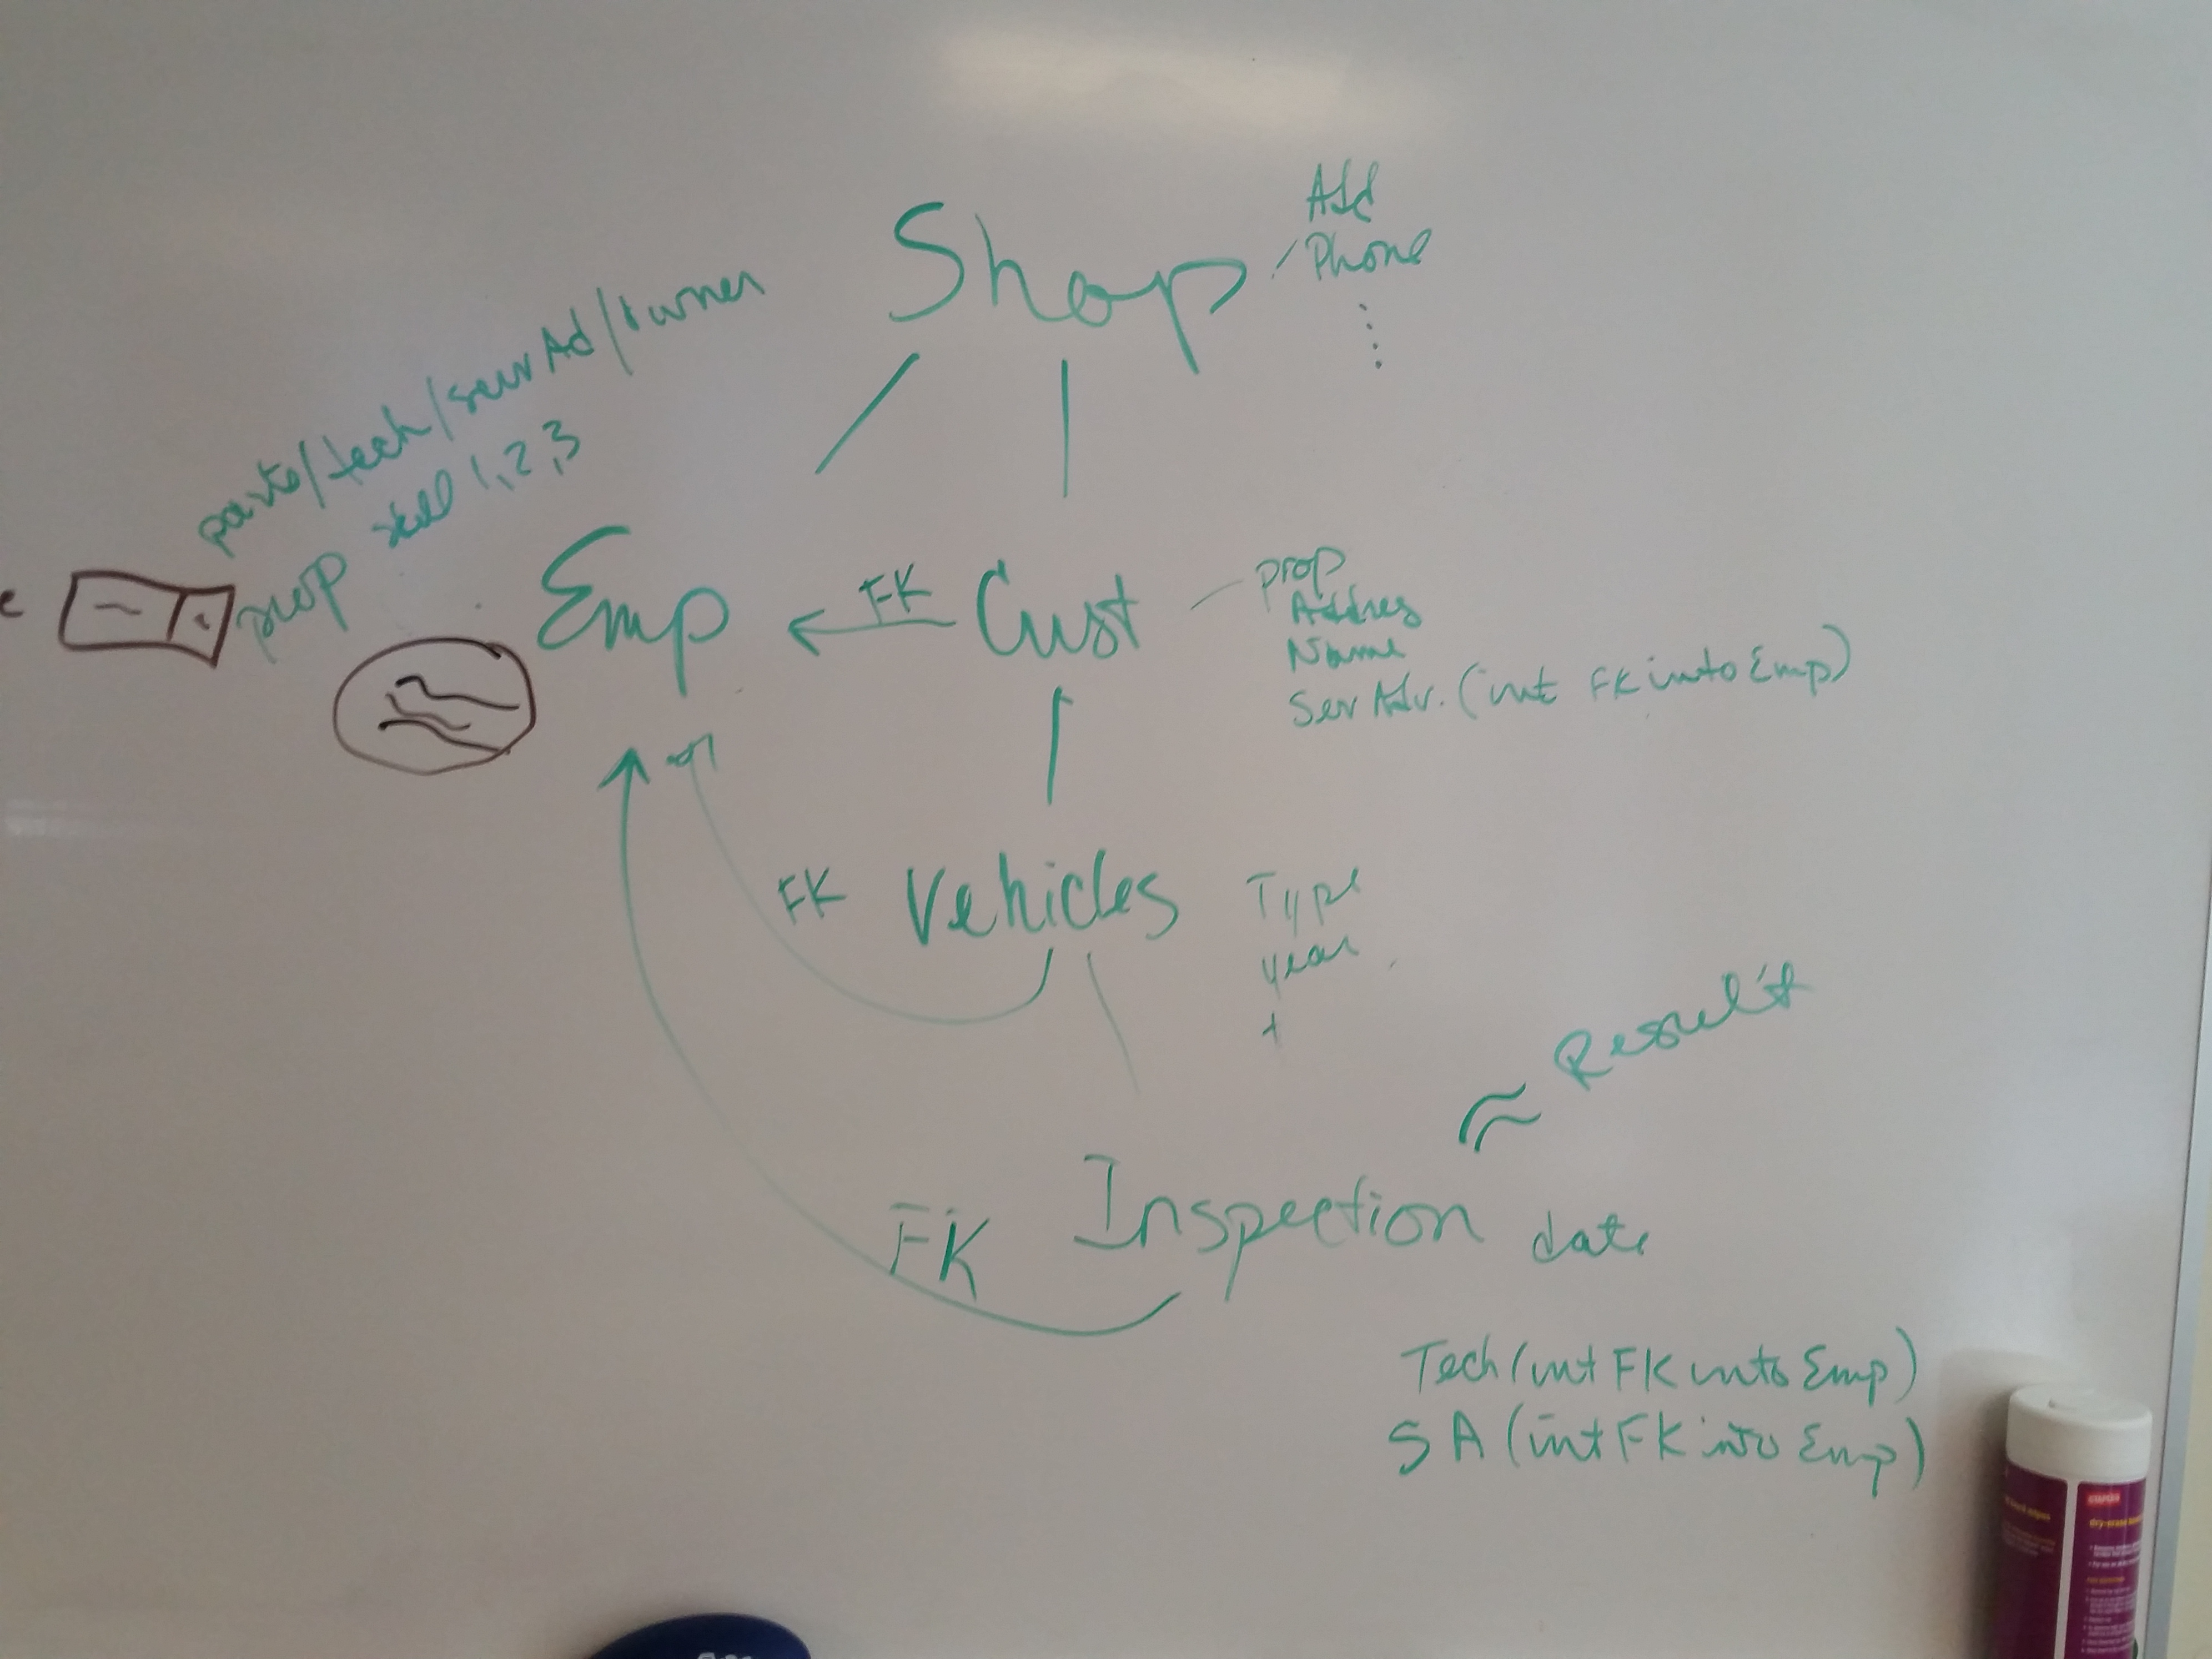 Shop
Add
Phone
parts/tech/servAd/owner
skill 1,2,3
prop
Emp
FK
Cust
prop
Address
Name
Ser Adv. (int FK into Emp)
FK
Vehicles
Type
year
+
Result
FK
Inspection
date
Tech (int FK into Emp)
SA (int FK into Emp)